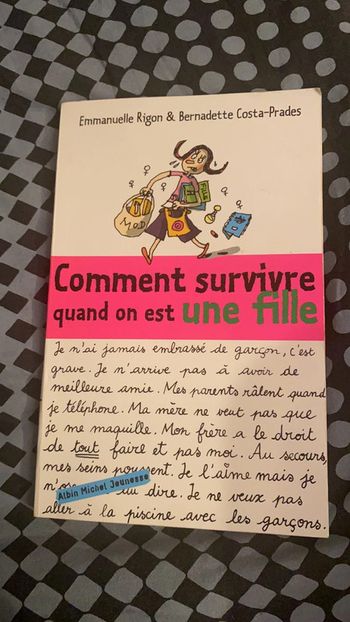 Emmanuelle Rigon & Bernadette Costa-Prades
Comment survivre
quand on est une fille
Je n'ai jamais embrassé de garçon, c'est
grave. Je n'arrive pas à avoir de
meilleure amie. Mes parents râlent quand
je téléphone. Ma mère ne veut pas que
je me maquille. Mon frère a le droit
de tout faire et pas moi. Au secours,
mes seins poussent. Je l'aime mais je
dire. Je ne veux pas
Albin Michel Jeunesse
aller à la piscine avec les garçons.